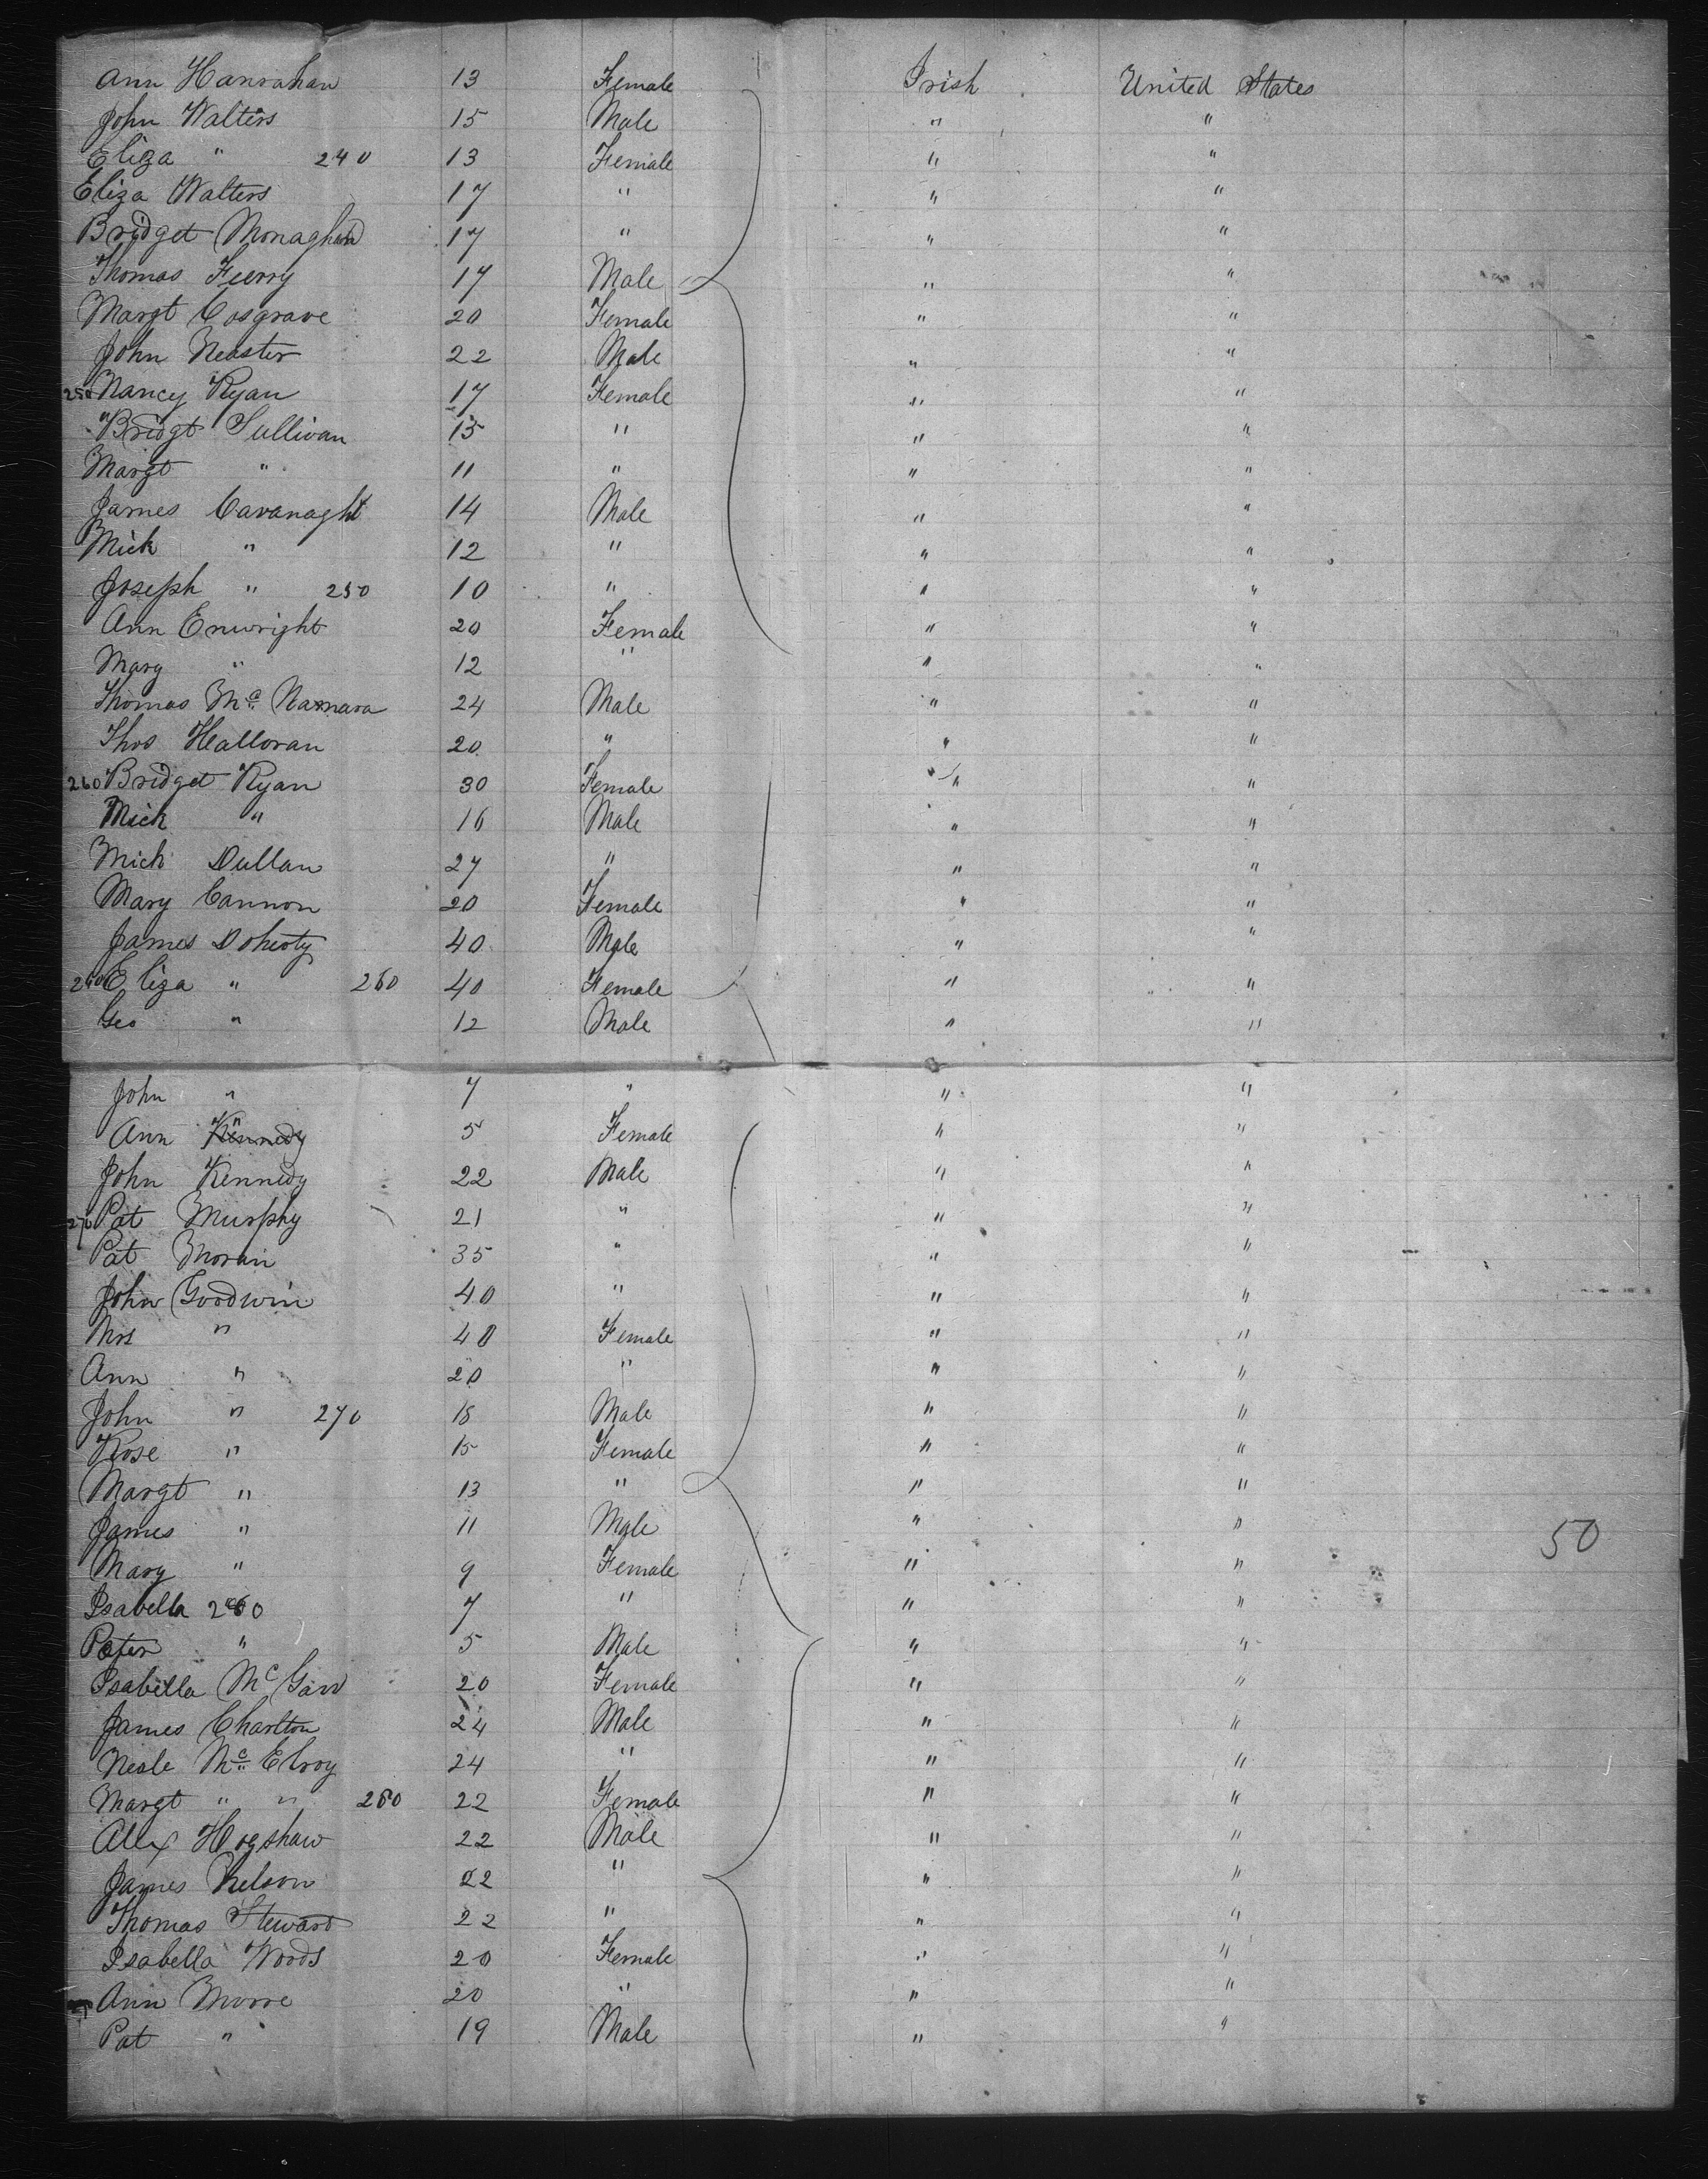 Ann Hanrahan 13 Female Irish United States
John Walters 15 Male " "
Eliza " 240 13 Female " "
Eliza Walters 17 " " "
Bridget Monaghan 17 " " "
Thomas Feerry 17 Male " "
Margt Cosgrave 20 Female " "
John Neaster 22 Male " "
250 Nancy Ryan 17 Female " "
Bridgt Sullivan 15 " " "
Margt " 11 " " "
James Cavanaght 14 Male " "
Mick " 12 " " "
Joseph " 250 10 " " "
Ann Enwright 20 Female " "
Mary " 12 " " "
Thomas Mc Namara 24 Male " "
Thos Halloran 20 " " "
260 Bridget Ryan 30 Female " "
Mick " 16 Male " "
Mich Dullan 27 " " "
Mary Cannon 20 Female " "
James Doherty 40 Male " "
Eliza " 260 40 Female " "
Geo " 12 Male " "
John " 7 " " "
Ann Kennedy " 5 Female " "
John Kennedy 22 Male " "
Pat Murphy 21 " " "
Pat Moran 35 " " "
John Goodwin 40 " " "
Mrs " 40 Female " "
Ann " 20 " " "
John " 270 18 Male " "
Rose " 15 Female " "
Margt " 13 " " "
James " 11 Male " "
Mary " 9 Female " "
Isabella 7 " " "
Peter " 5 Male " "
Isabella Mc Garr 20 Female " "
James Charlton 24 Male " "
Neale Mc Elroy 24 " " "
Margt " " 280 22 Female " "
Alex Hogshaw 22 Male " "
James Nelson 22 " " "
Thomas Steward 22 " " "
Isabella Woods 20 Female " "
Ann Moore 20 " " "
Pat " 19 Male " "
50